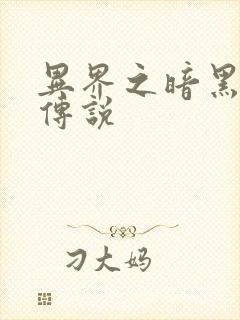 異界之暗黑
傳說
刁大妈